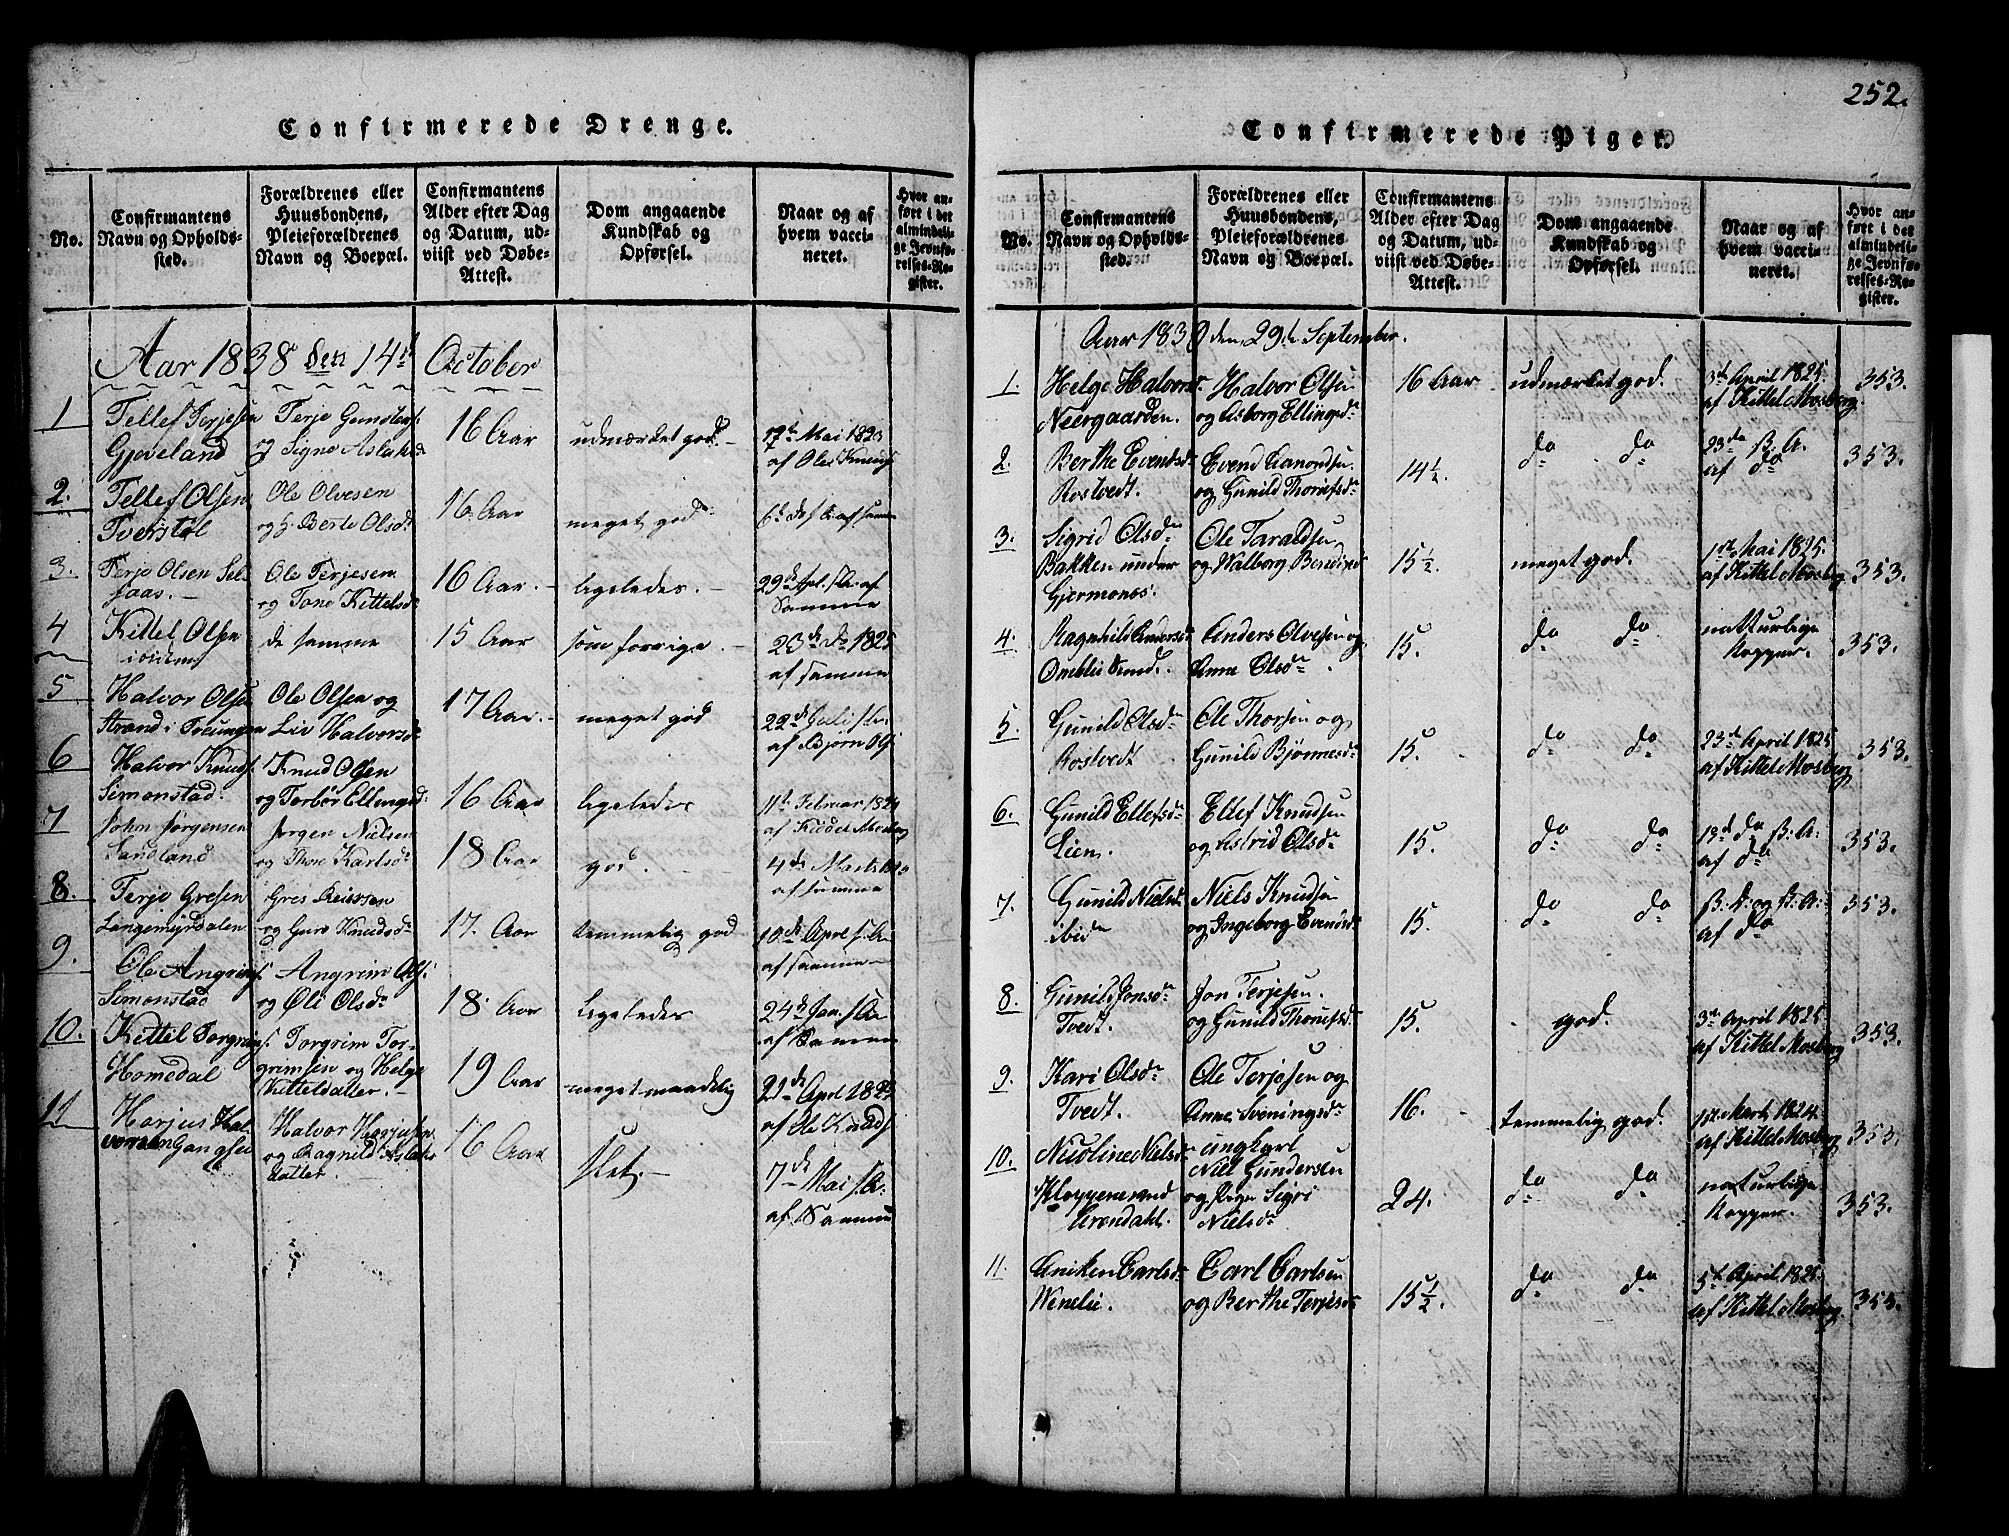 Confirmerede Drenge.
No.
Confirmantens
Navn og Opholds-
sted.
Forældrenes eller
Huusbondens,
Pleieforældrenes
Navn og Boepæl.
Confirmantens
Alder efter Dag
og Datum, ud-
viist ved Døbe-
Attest.
Dom angaaende
Kundskab og
Opførsel.
Naar og af
hvem vacci-
neret.
Hvor an-
ført i det
almindeli-
ge Jevnfø-
relses-Re-
gister.
Aar 1838 den 14de October
1
Tellef Terjesen
Gjeveland
Terje
Signe Aslaksd
16 Aar
udmærket god.
17de Mai 1823
af Ole
2.
Tellef Olsen
Tverstøl
Ole Olvesen
og Berte Olsdr
16 Aar
meget god
3.
Terje Olsen Sel-
jaas.
Ole Terjesen
og Tone Kittelsd
16 Aar.
ligeledes.
29de
Samme
4
Kittel Olsen
ibidem
de samme
15 Aar
som forrige.
23de do 1825
af samme
5
Halvor Olsen
Strand i Treungen
Ole Olsen og
Liv Halvorsdr
17 Aar.
meget god
22de Juli
af Bjørn Ols
6
Halvor Knuds.
Simonstad.
Knud Olsen
og Torbør Ellingsd.
16 Aar
ligeledes
11te Februar 1824
af Kiddel Mosberg
7
John Jørgensen
Sandland
Jørgen Nielsen
og Thore Karlsdr
18 Aar
god.
4de Marts
af samme
8.
Terje Gresen
Langemyrdalen
Gres
og Guro Knudsdr
17. Aar
temmelig god
10de Apr.
af samme
9.
Ole Angrims.
Simonstad
Angrim Ols.
og Øli Olsdr
18. Aar
ligeledes
24de Jan.
af Samme
10.
Kittel Torgrims.
Homedal
Torgrim Tor-
grimsen og Helge
Kittelsdatter.
19 Aar
meget maadelig
21de Aprl
af Ole Knuds
11
Harjus Hal
vorsen
Halvor Harjusen
og Ragnild Aslaks
datter.
16 Aar
slet.
7de Mai
af Samme
252.
Confirmerede Piger.
No.
Confirmantens
Navn og Opholds-
sted.
Forældrenes eller
Huusbondens,
Pleieforældrenes
Navn og Boepæl.
Confirmantens
Alder efter Dag
og Datum, ud-
viist ved Døbe-
Attest.
Dom angaaende
Kundskab og
Opførsel.
Naar og af
hvem vacci-
neret.
Hvor an-
ført i det
almindeli-
ge Jevnfø-
relses-Re-
gister.
Aaar 1839 den 29de September.
1.
Helge Halvorsdr
Neergaarden.
Halvor Olsen
og Asborg Ellingsdr
16 Aar
udmærket god.
3de April 1825.
af Kittel Mosberg.
353.
2.
Berthe Evendsdr
Rostvedt.
Evend Aamondsen
og Gunild Thorufsdr
14½.
do do
23de ß. A.
af do
353.
3.
Sigrid Olsdr
Bakken under
Gjermones.
Ole Taraldsen
og Walborg
15½.
meget god.
1ste Mai 1825.
af Kittel Mosberg
353.
4.
Ragnhild Andersdr
Omblie Sund.
Anders Olvesen og
Anne Olsdr
15.
do do
naturlige
Kopper.
353.
5.
Gunild Olsdr
Rostvedt
Ole Thorsen og
Gunild Bjørnesdr
15.
do do
23de April 1825
af Kittel Mosberg
353.
6.
Gunild Ellefsdr
Lien.
Ellef Knudsen
og Astrid Olsdr
15.
do do
19de do ß: A:
af do
353.
7.
Gunild Nielsdr
ibidm
Niels Knudsen
og Ingeborg Evendsdr
15.
do do
ß: D: og ß: A:
af do
353.
8.
Gunild Jonsdr
Tvedt.
Jon Terjesen.
og Gunild Thorufsdr
15.
god.
3de April 1825
af Kittel Mosberg
353.
9.
Kari Olsdr
Tvedt.
Ole Terjesen og
Anne Sveningsdr
16.
temmelig god.
Mart. 1824.
af Kittel Mosberg
353.
10.
Nicoline Nielsdr
Kloppene ved
Arendahl.
ungkarl
Niel Gundersen
og Pige Sigri
Nielsdr
24.
do do
naturlige
Kopper.
353.
11.
Aniken Carlsdr
Wenelie.
Carl Carlsen
og Berthe Terjesdr
15½.
do do
5te April 1825.
af Kittel Mosberg
353.